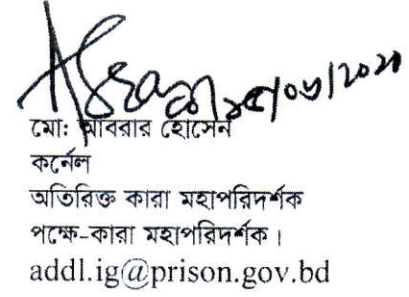 মো: আবরার হোসেন
কর্নেল
অতিরিক্ত কারা মহাপরিদর্শক
পক্ষে-কারা মহাপরিদর্শক।
addl.ig@prison.gov.bd